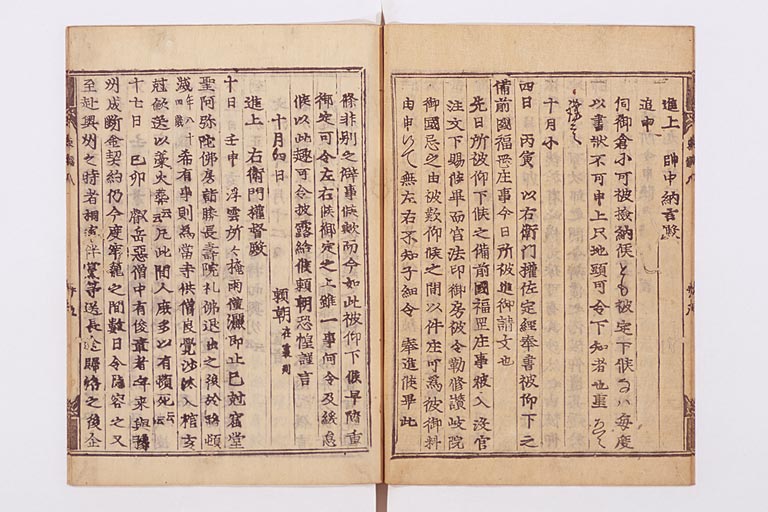 進上 帥中納言殿
追申
何御倉小可被撿納候とも被定下候ハ毎度
以書状不可申上只地頭可令下知者也重
謹言
十月小
四日 丙寅 以右衛門權佐定經奉書被仰下之
備前國福罡庄事今日所被進御請文也
先日所被仰下候之備前國福罡庄事被入没官
注文下賜候畢而宮法印御房被令勤修讃岐院
御國忌之由被歎仰候之間以件庄可為被御料
由申候て無左右不知子細令奉進候畢此
條非別之僻事候歟而今如此被仰下候早随重
御定可令左右候御定之上雖一事何令及緩怠
候以此趣可令披露給候頼朝恐惶謹言
十月四日 頼朝在裏判
進上 右衛門權督殿
十日 壬申 浮雲所々掩雨僅灑即止已尅窟堂
聖阿弥陀佛房詣勝長壽院礼佛退出之後於路頓
希有事則為當寺供僧良覺沙汰入棺
歛送以藁火葬云云凡此間人庶多以有頓死云云
十七日 己卯 叡岳惡僧中有俊章者年来與豫
州成断金契約仍今度牢籠之間數日令隠容之又
至赴奥州之時者相率伴黨等送長途歸洛之後企